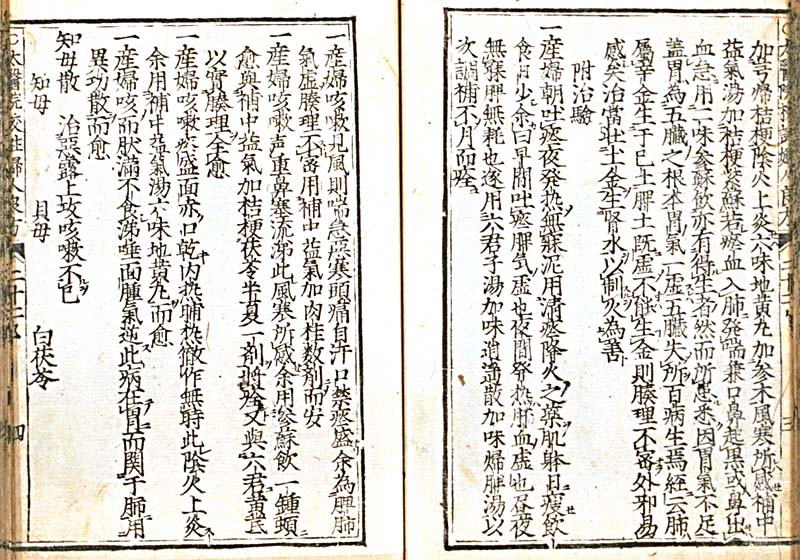 加芎歸桔梗陰火上炎六味地黃丸加參禾風寒所感補中
益氣湯加桔梗紫蘇若瘀血入肺發喘兼口鼻起黑或鼻出
血急用二味參蘇飲亦有得生者然而所患悉因胃氣不足
蓋胃為五臟之根本胃氣一虛五臟失所百病生焉經云肺
屬辛金生于己土脾土既虛不能生金則腠理不密外邪易
感矣治當壯土金生腎水以制火為善
附治驗
一產婦朝吐痰夜發热無寐泥用清痰降火之藥肌躰日瘦飲
食日少余曰早間吐痰脾気虛也夜間發热肝血虛也昼夜
無寐脾無耗也遂用六君子湯加味逍遙散加味歸脾湯以
次調補不月而痊
一產婦咳嗽見風則喘急惡寒頭痛自汗口禁痰盛余為脾肺
氣虛腠理不密用補中益氣加肉桂数剤而安
一產婦咳嗽声重鼻塞流涕此風寒所感余用參蘇飲一鍾頓
愈與補中益氣加桔梗茯苓半夏一剤將痊又與六君黃芪
以實腠理全愈
一產婦咳嗽痰盛面赤口乾内热晡热徹作無時此陰火上炎
余用補中益氣湯六味地黃丸而愈
一產婦咳而胅滿不食涕唾面腫氣逆此病在胃而関于肺用
異功散而愈
知母散 治惡露上攻咳嗽不已
知母 貝母 白茯苓
太醫院校註婦人良方 二十二 四